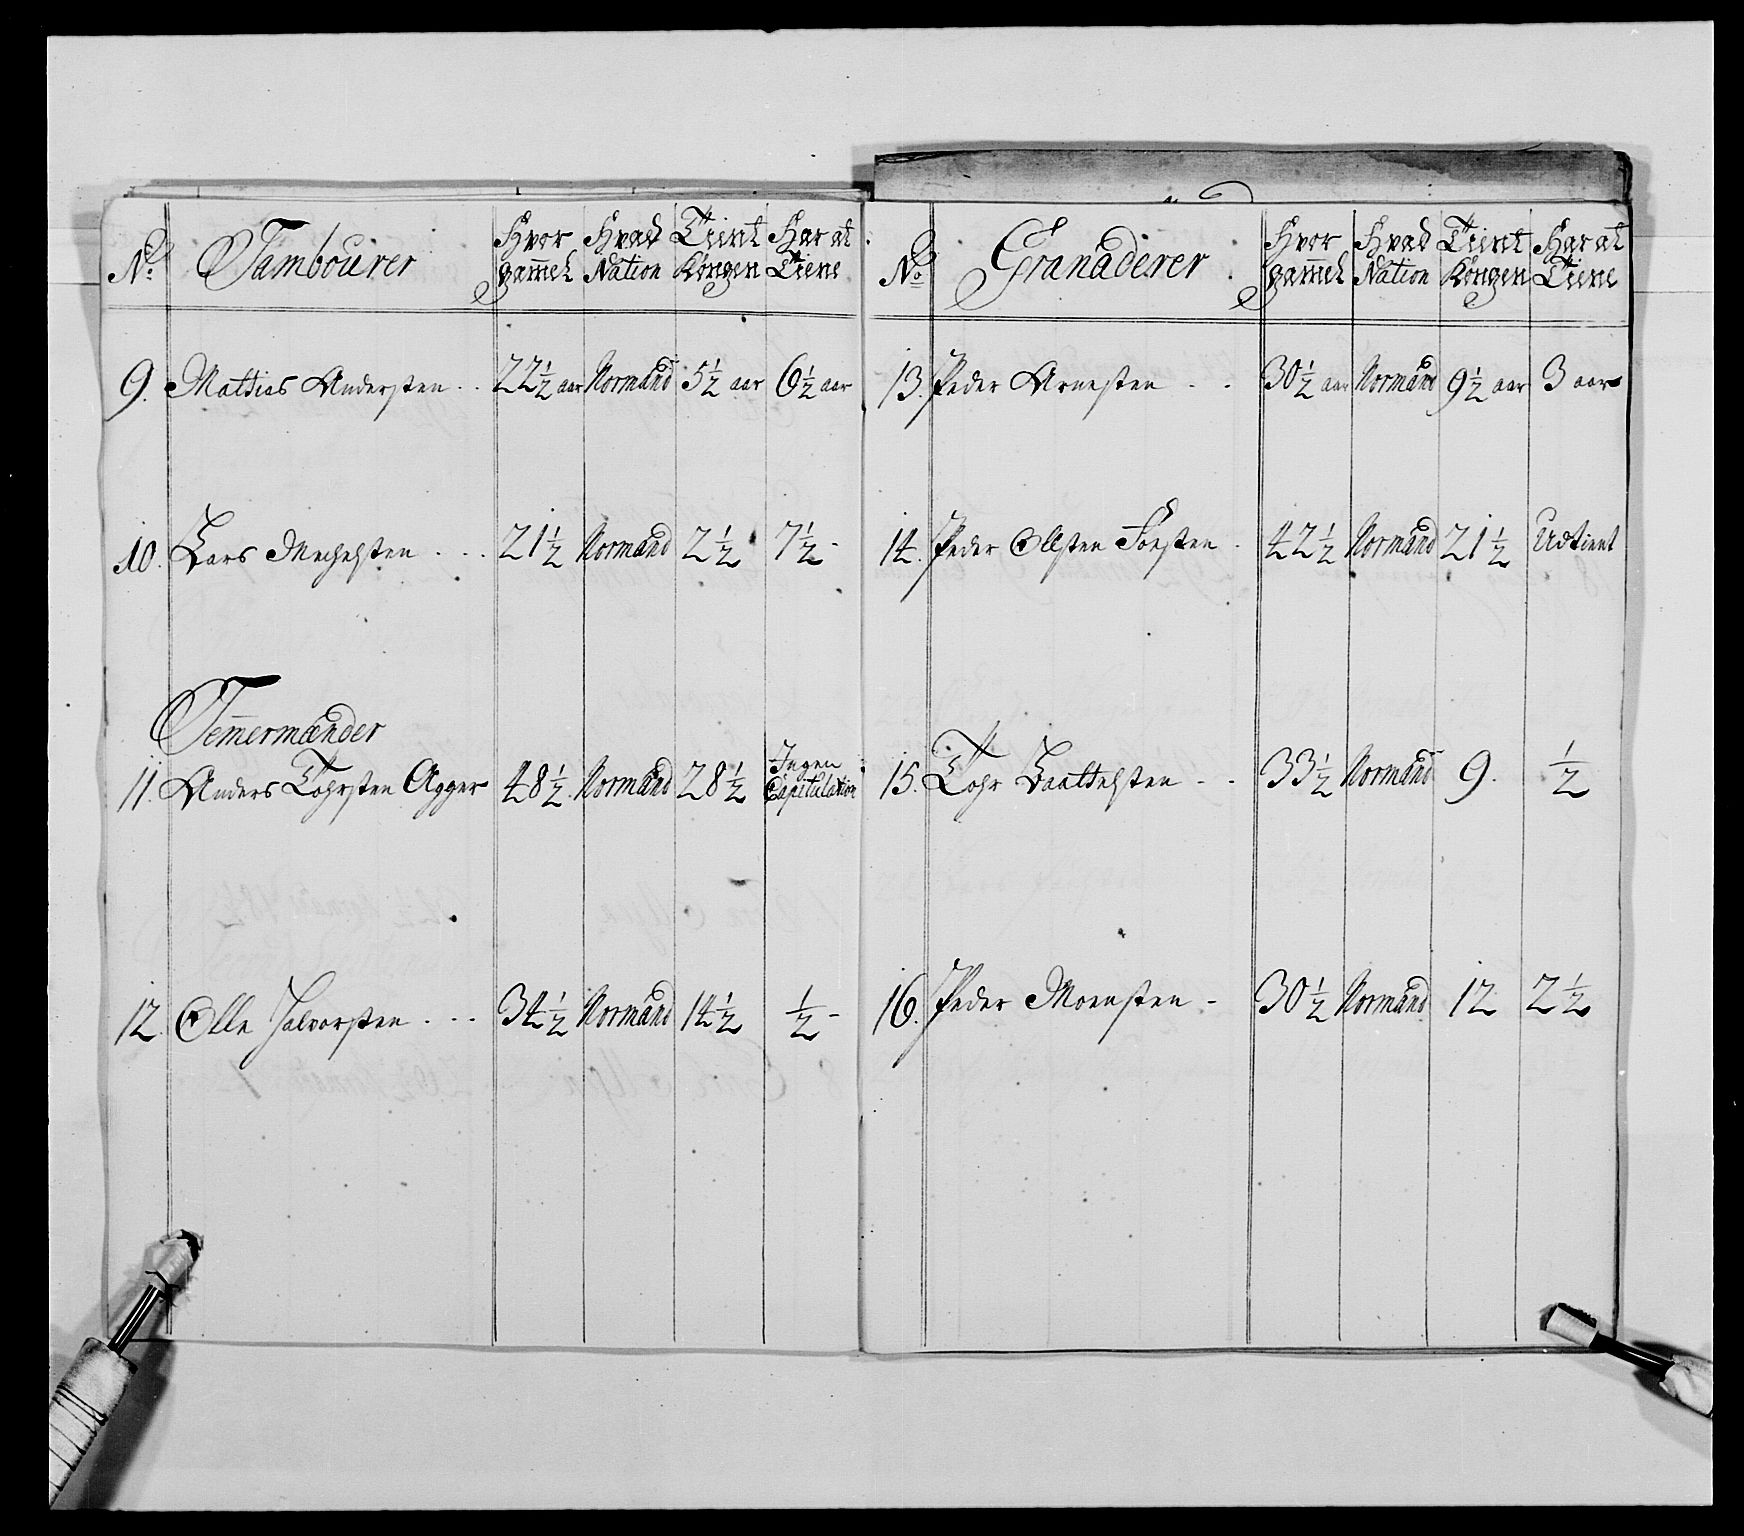 No. Tambourer Hvor gam̅el Hvad Nation Tient Kongen Har at Tiene
9. Mathias Andersten 22½ aar Normand 5½ aar 6½ aar
10. Lars Mechelsten 21½ Normand 2½ 7½
Tem̅ermænder
11. Anders Tohrsten Agger 48½ Normand 28½ Ingen Capitulation
12 Olle Halvorsten 34½ Normand 14½ ½
No. Granaderer Hvor gam̅el Hvad Nation Tient Kongen Har at Tiene
13. Peder Arnesten 30½ aar Normand 9½ aar 3 aar
14. Peder Ollsten 42½ Normand 21½ Udtient
15. Tohr 33½ Normand 9. ½
16. Peder Monsten 30½ Normand 12 2½